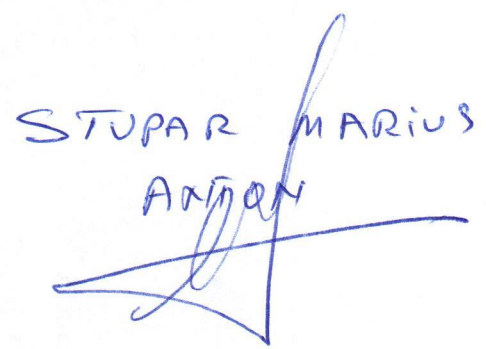 STUPAR MARiUS
ANTON